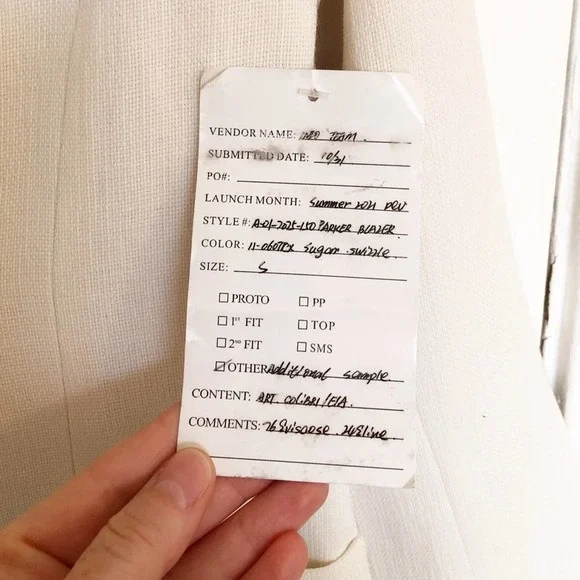 VENDOR NAME: TEAM.
SUBMITTED DATE: 10/21
PO#:
LAUNCH MONTH: Summer 2021
STYLE #: A-01-2025-150 PARKER BLAZER
COLOR: 11-0607TPX Sugar swizzle.
SIZE: S
PROTO PP
1ST FIT TOP
2ND FIT SMS
OTHER Additional sample
CONTENT: ART COLIBRI
COMMENTS: